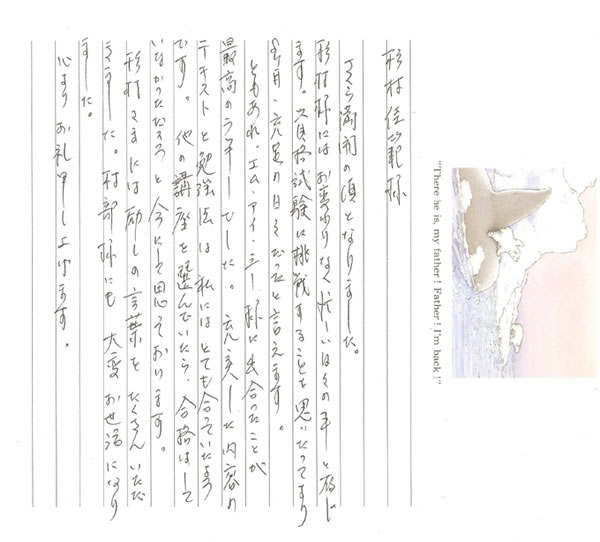 杉村佳範様
さくら満開の頃となりました。
杉村様にはお変わりなくお忙しい日々の事と存じ
ます。資格試験に挑戦することを思いたってより
充足の日々だったと言えます。
ともあれ、エム・アイ・シー様に出合ったことが
最高のラッキーでした。充実した内容の
テキストと勉強法は私にはとても合っていたよう
です。他の講座を選んでいたら、合格はして
いなかっただろうと今にして思っております。
杉村さまには励しの言葉をたくさんいただ
きました。村部様にも大変お世話になり
ました。
心よりお礼申し上げます。
"There he is, my father! Father! I'm back!"